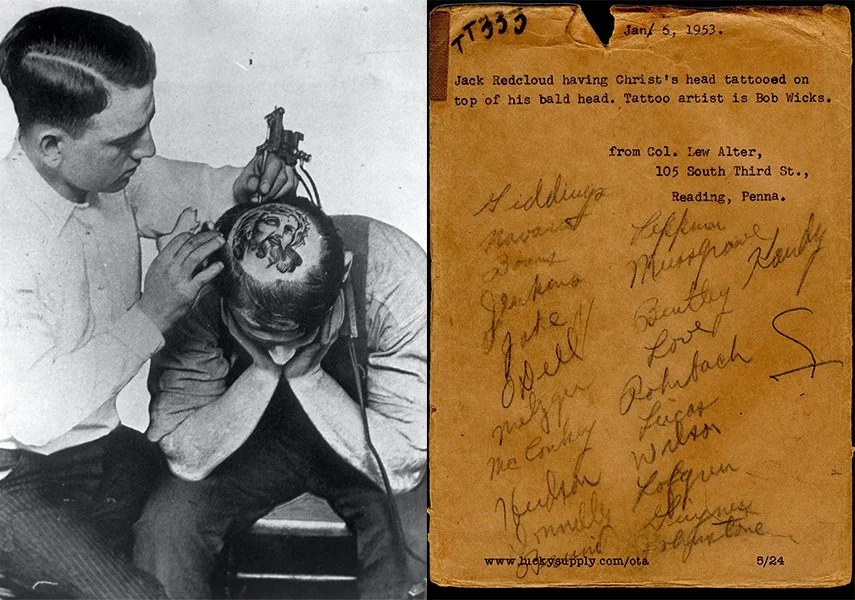 TT333
Jan. 6, 1953.
Jack Redcloud having Christ's head tattooed on
top of his bald head. Tattoo artist is Bob Wicks.
from Col. Lew Alter,
105 South Third St.,
Reading, Penna.
Giddings
Navarro
Jenkins
Jake
Odell
Metzger
McConkey
Hudson
Connelly
Musgrove
Handy
Bentley
Love
Rohrbach
Lucas
Wilson
Lofgren
Skinner
www.luckysupply.com/ota
5/24